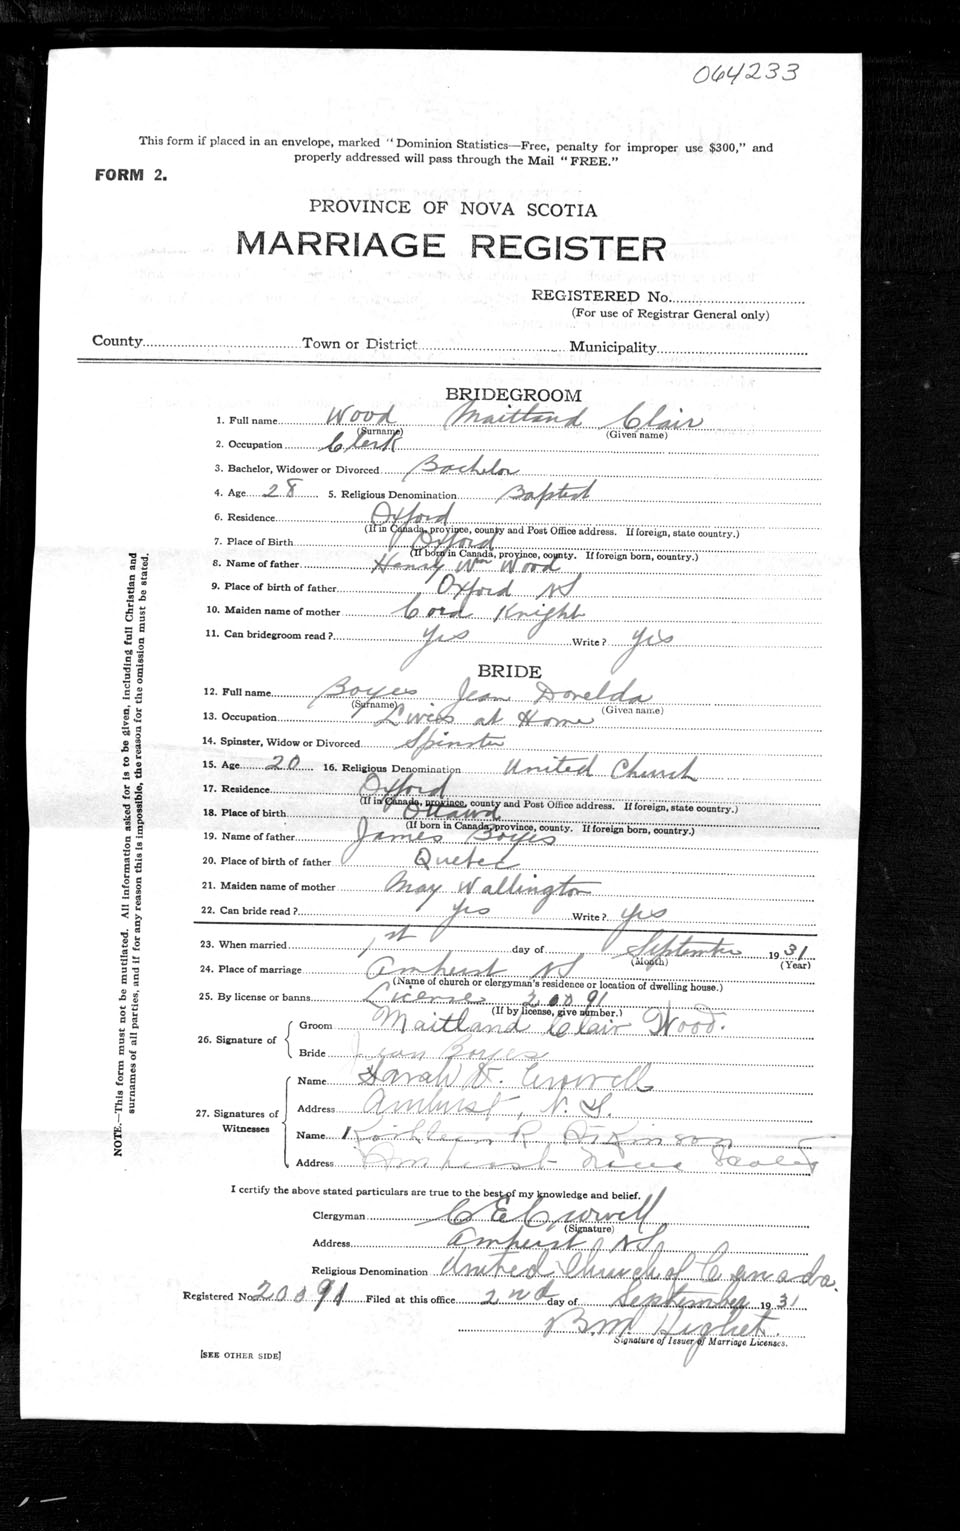 064233
This form if placed in an envelope, marked "Dominion Statistics—Free, penalty for improper use $300," and
properly addressed will pass through the Mail "FREE."
FORM 2.
PROVINCE OF NOVA SCOTIA
MARRIAGE REGISTER
REGISTERED No.
(For use of Registrar General only)
County Town or District Municipality
BRIDEGROOM
1. Full name Wood Maitland Clair
(Surname) (Given name)
2. Occupation Clerk
3. Bachelor, Widower or Divorced Bachelor
4. Age 28 5. Religious Denomination Baptist
6. Residence Oxford
(If in Canada, province, county and Post Office address. If foreign, state country.)
7. Place of Birth Oxford
(If born in Canada, province, county. If foreign born, country.)
8. Name of father Henry Wm Wood
9. Place of birth of father Oxford NS
10. Maiden name of mother Cora Knight
11. Can bridegroom read? Yes Write? Yes
BRIDE
12. Full name Boyes Jean Dorelda
(Surname) (Given name)
13. Occupation Lives at Home
14. Spinster, Widow or Divorced Spinster
15. Age 20 16. Religious Denomination United Church
17. Residence Oxford
(If in Canada, province, county and Post Office address. If foreign, state country.)
18. Place of birth Ottawa
(If born in Canada, province, county. If foreign born, country.)
19. Name of father James Boyes
20. Place of birth of father Quebec
21. Maiden name of mother May Wallington
22. Can bride read? Yes Write? Yes
23. When married 1st day of September 1931
(Month) (Year)
24. Place of marriage Amherst NS
(Name of church or clergyman's residence or location of dwelling house.)
25. By license or banns License 20091
(If by license, give number.)
26. Signature of
Groom Maitland Clair Wood.
Bride Jean Boyes
27. Signatures of Witnesses
Name Sarah V. Crowell
Address Amherst, N.S.
Name Kathleen R. Atkinson
Address Amherst Nova Scotia
I certify the above stated particulars are true to the best of my knowledge and belief.
Clergyman C E Crowell
(Signature)
Address Amherst NS
Religious Denomination United Church of Canada.
Registered No. 20091 Filed at this office 2nd day of September 1931
B.M.
Signature of Issuer of Marriage Licenses.
[SEE OTHER SIDE]
NOTE.—This form must not be mutilated. All information asked for is to be given, including full Christian and
surnames of all parties, and if for any reason this is impossible, the reason for the omission must be stated.